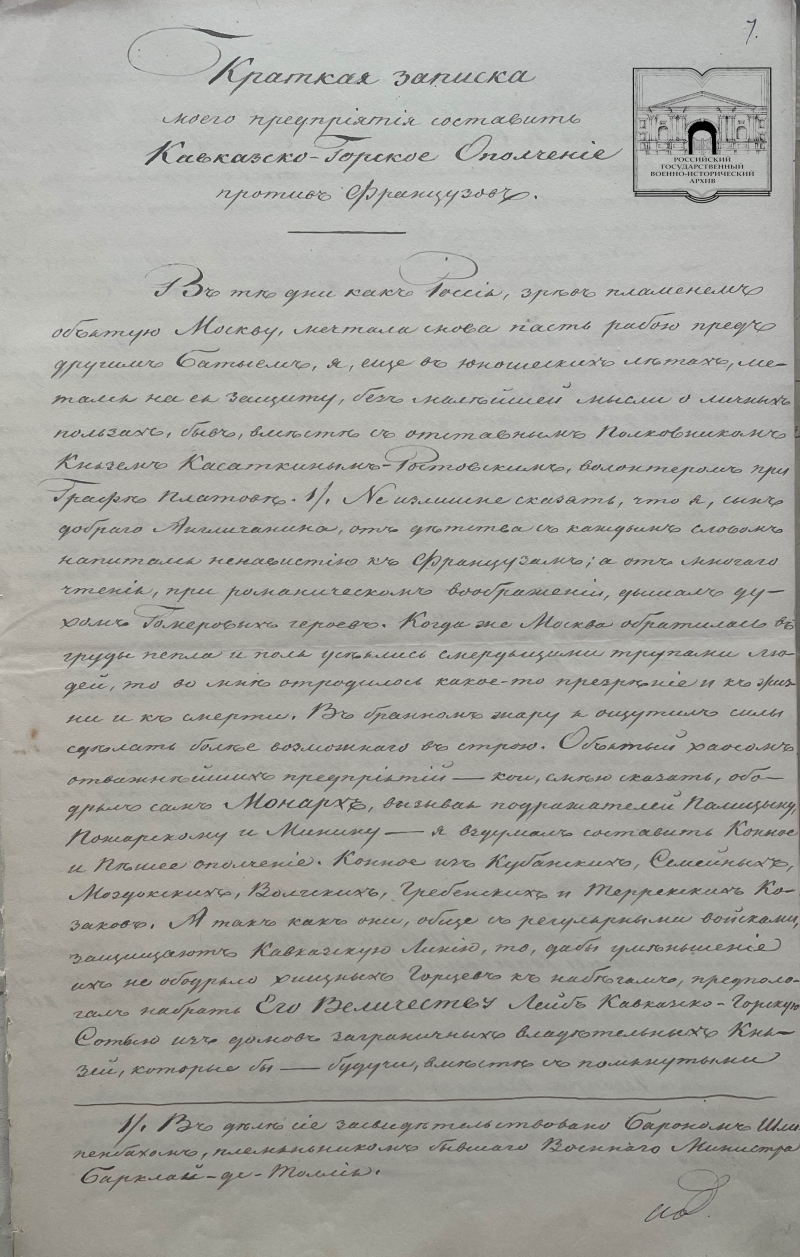 7.
Краткая записка
моего предпріятія составить
Кавказско-Горское Ополченіе
противъ Французовъ.
РОССИЙСКИЙ
ГОСУДАРСТВЕННЫЙ
ВОЕННО-ИСТОРИЧЕСКИЙ
АРХИВ
Въ тѣ дни какъ Россія, зрѣвъ пламенемъ
объятую Москву, мечтала снова пасть рабою предъ
другимъ Батыемъ, я, еще въ юношескихъ лѣтахъ, ме-
тался на ея защиту, безъ малѣйшей мысли о личныхъ
пользахъ, бывъ, вмѣстѣ съ отставнымъ Полковникомъ
Княземъ Касаткинымъ-Ростовскимъ, волонтеромъ при
Графѣ Платовѣ. 1/. Не излишне сказать, что я, сынъ
добраго Англичанина, отъ дѣтства съ каждымъ словомъ
напитался ненавистію къ Французамъ; а отъ многаго
чтенія, при романическомъ воображеніи, дышалъ ду-
хомъ Гомеровыхъ героевъ. Когда же Москва обратилась въ
груды пепла и поля усѣялись смердящими трупами лю-
дей, то во мнѣ отродилось какое-то презрѣніе и къ жиз-
ни и къ смерти. Въ бранномъ жару я ощутилъ силы
сдѣлать болѣе возможнаго въ строю. Объятый хаосомъ
отважнѣйшихъ предпріятій — кои, смѣю сказать, обо-
дрялъ самъ Монархъ, вызывая подражателей Палицыну,
Пожарскому и Минину — я вздумалъ составить Конное
и Пѣшее ополченіе. Конное изъ Кубанскихъ, Семейныхъ,
Моздокскихъ, Волгскихъ, Гребенскихъ и Террекскихъ Ко-
заковъ. А такъ какъ они, обще съ регулярными войсками,
защищаютъ Кавказскую Линію, то, дабы уменьшеніе
ихъ не ободрило хищныхъ Горцевъ къ набѣгамъ, предпола-
галъ набрать Его Величеству Лейбъ Кавказско-Горскую
Сотню изъ домовъ заграничныхъ владѣтельныхъ Кня-
зей, которые бы — будучи, вмѣстѣ съ помянутыми
1/. Въ дѣлѣ сіе засвидѣтельствовано Барономъ Шли
пенбахомъ, племянникомъ бывшаго Военнаго Министра
Барклай-де-Толлія.